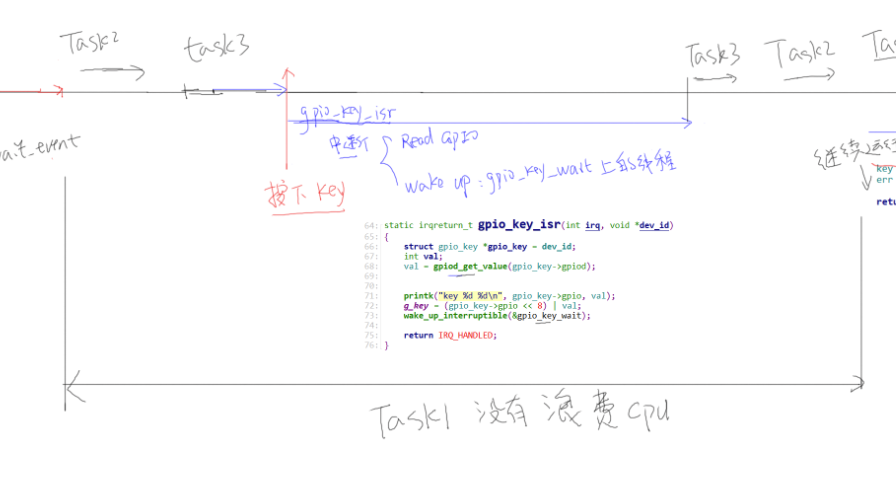 Task2
task3
Task3
Task2
gpio_key_isr
中断
Read GPIO
wake up : gpio_key_wait 上的线程
wait_event
按下 key
继续运行
key
err
retu
64: static irqreturn_t gpio_key_isr(int irq, void *dev_id)
65: {
66: struct gpio_key *gpio_key = dev_id;
67: int val;
68: val = gpiod_get_value(gpio_key->gpiod);
69:
70:
71: printk("key %d %d\n", gpio_key->gpio, val);
72: g_key = (gpio_key->gpio << 8) | val;
73: wake_up_interruptible(&gpio_key_wait);
74:
75: return IRQ_HANDLED;
76: }
Task1 没有浪费cpu